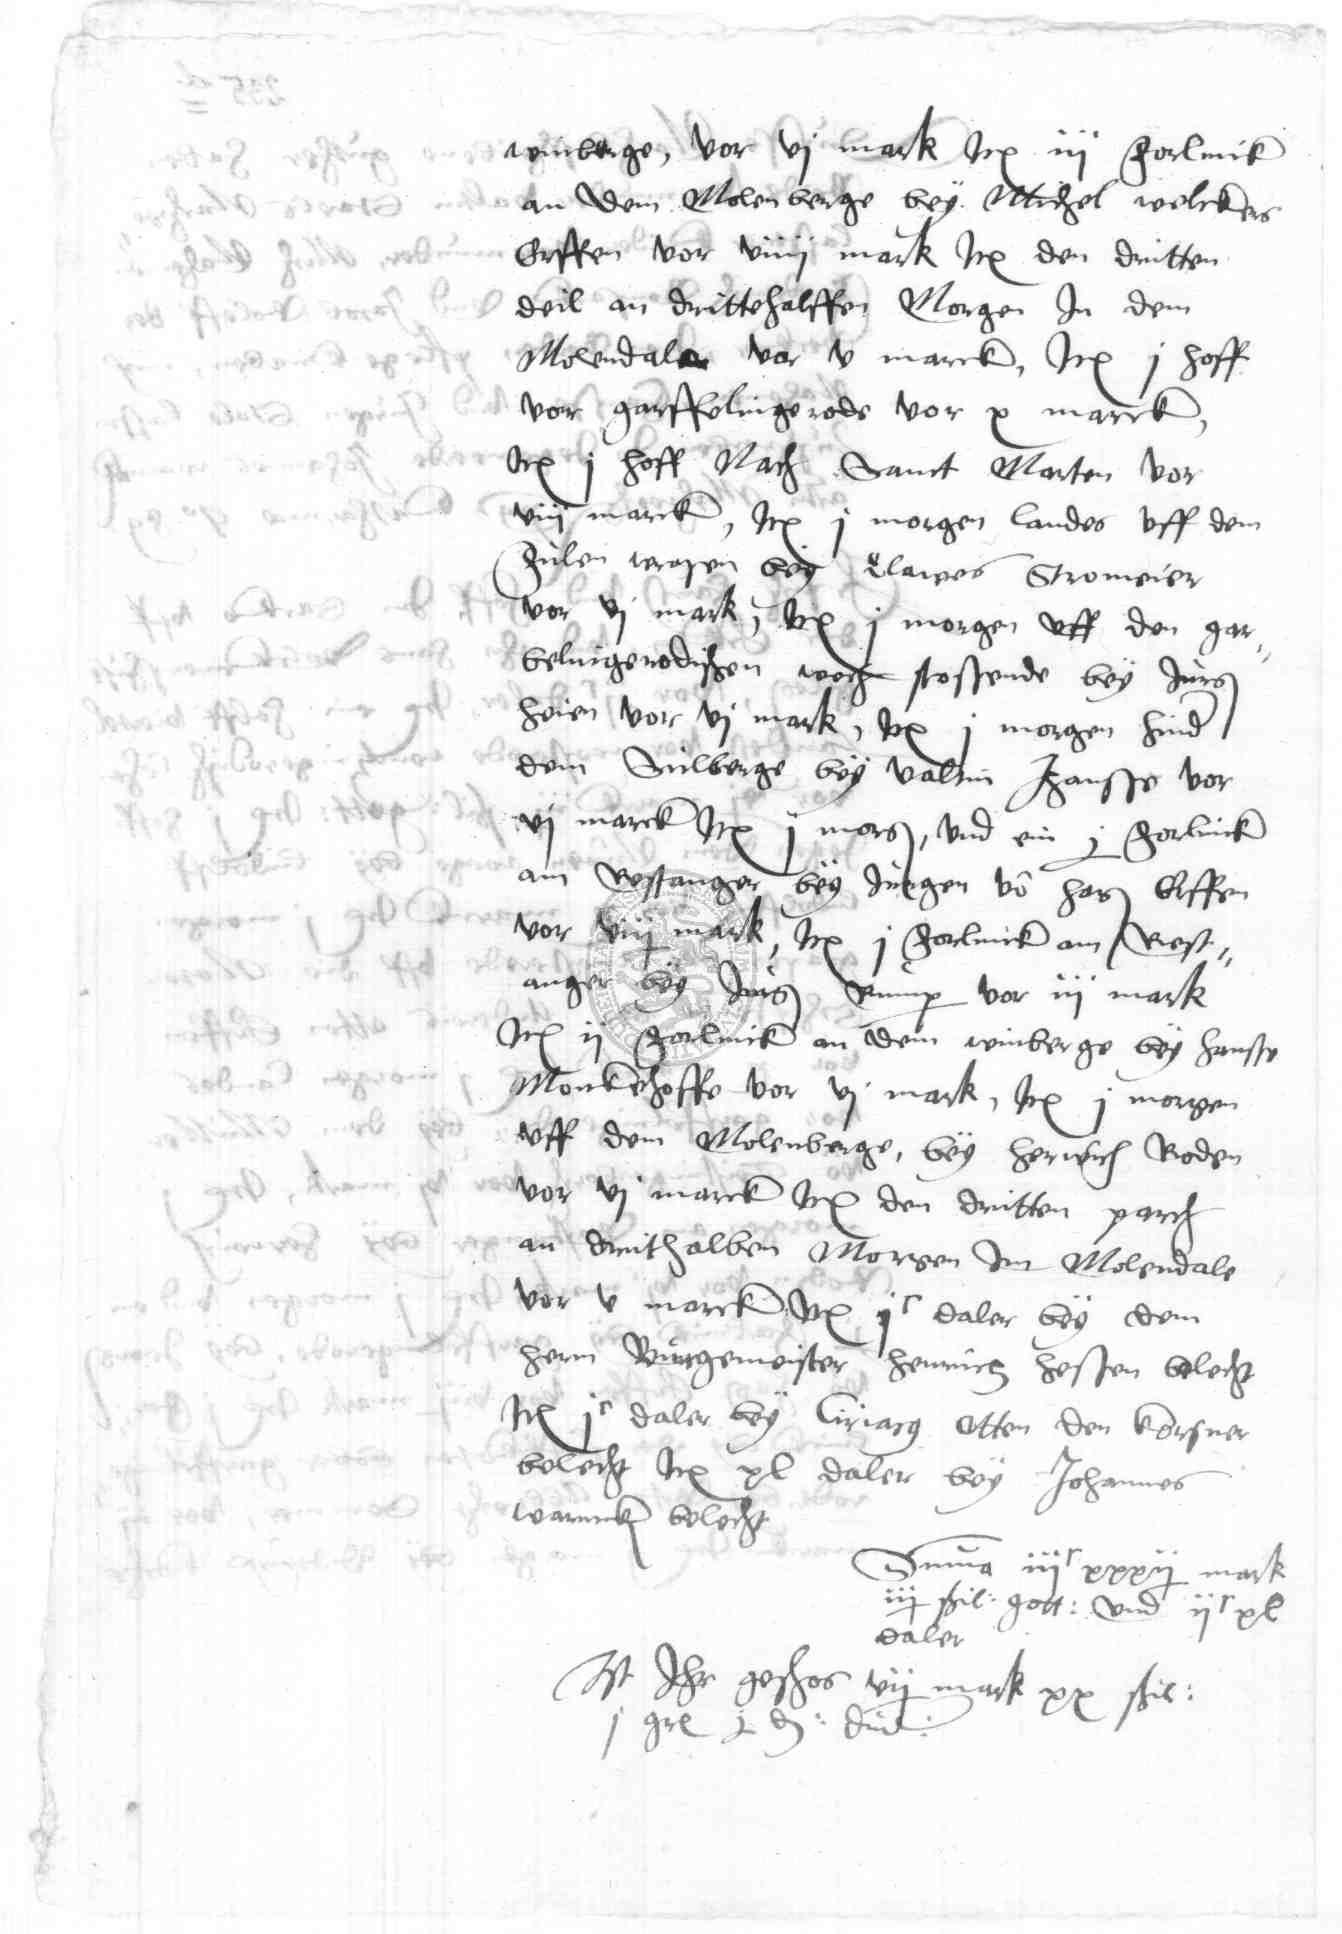 winberge, vor vj mark Itē iij Forlinck
an dem Molenberge beÿ Michel welckers
Erffen vor viiij mark Itē den dritten
deil an drittehalffen Morgen In dem
Molendale vor v marck, Itē j hoff
vor garffelingerode vor x marck,
Itē j hoff Nach Sanct Marten vor
viij marck, Itē j morgen landes vff dem
Fulen wrasen beÿ Clawes Stromeier
vor vj mark, Itē j morgen vff den gar„
belingerodischen wech stossende beÿ Jurg
heien vor vj mark, Itē j morgen hind
dem Sulberge beÿ valtin Hansse vor
vj marck Itē j morg, vnd ein j Forlinck
am Restanger beÿ Jurgen vō hag Erffen
vor viij mark, Itē j Forlinck am Rest„
anger beÿ Jurg Rump vor iij mark
Itē ij Forlinck an dem winberge beÿ hansse
Monkehoffe vor vj mark, Itē j morgen
vff dem Molenberge, beÿ herwich Roden
vor vj marck Itē den dritten parch
an drithalben Morgen Im Molendale
vor v marck Itē jᶜ daler beÿ dem
hern Burgemeister henrich hessen belecht
Itē jᶜ daler beÿ Ciriacq Otten den korsner
belecht Itē xl daler beÿ Johannes
warneck belecht
Suma iijᶜ xxxij mark
iij schil: gott: vnd ijᶜ xl
daler
Ist Ihr geschos vij mark xx schil:
j gre j d: dud: